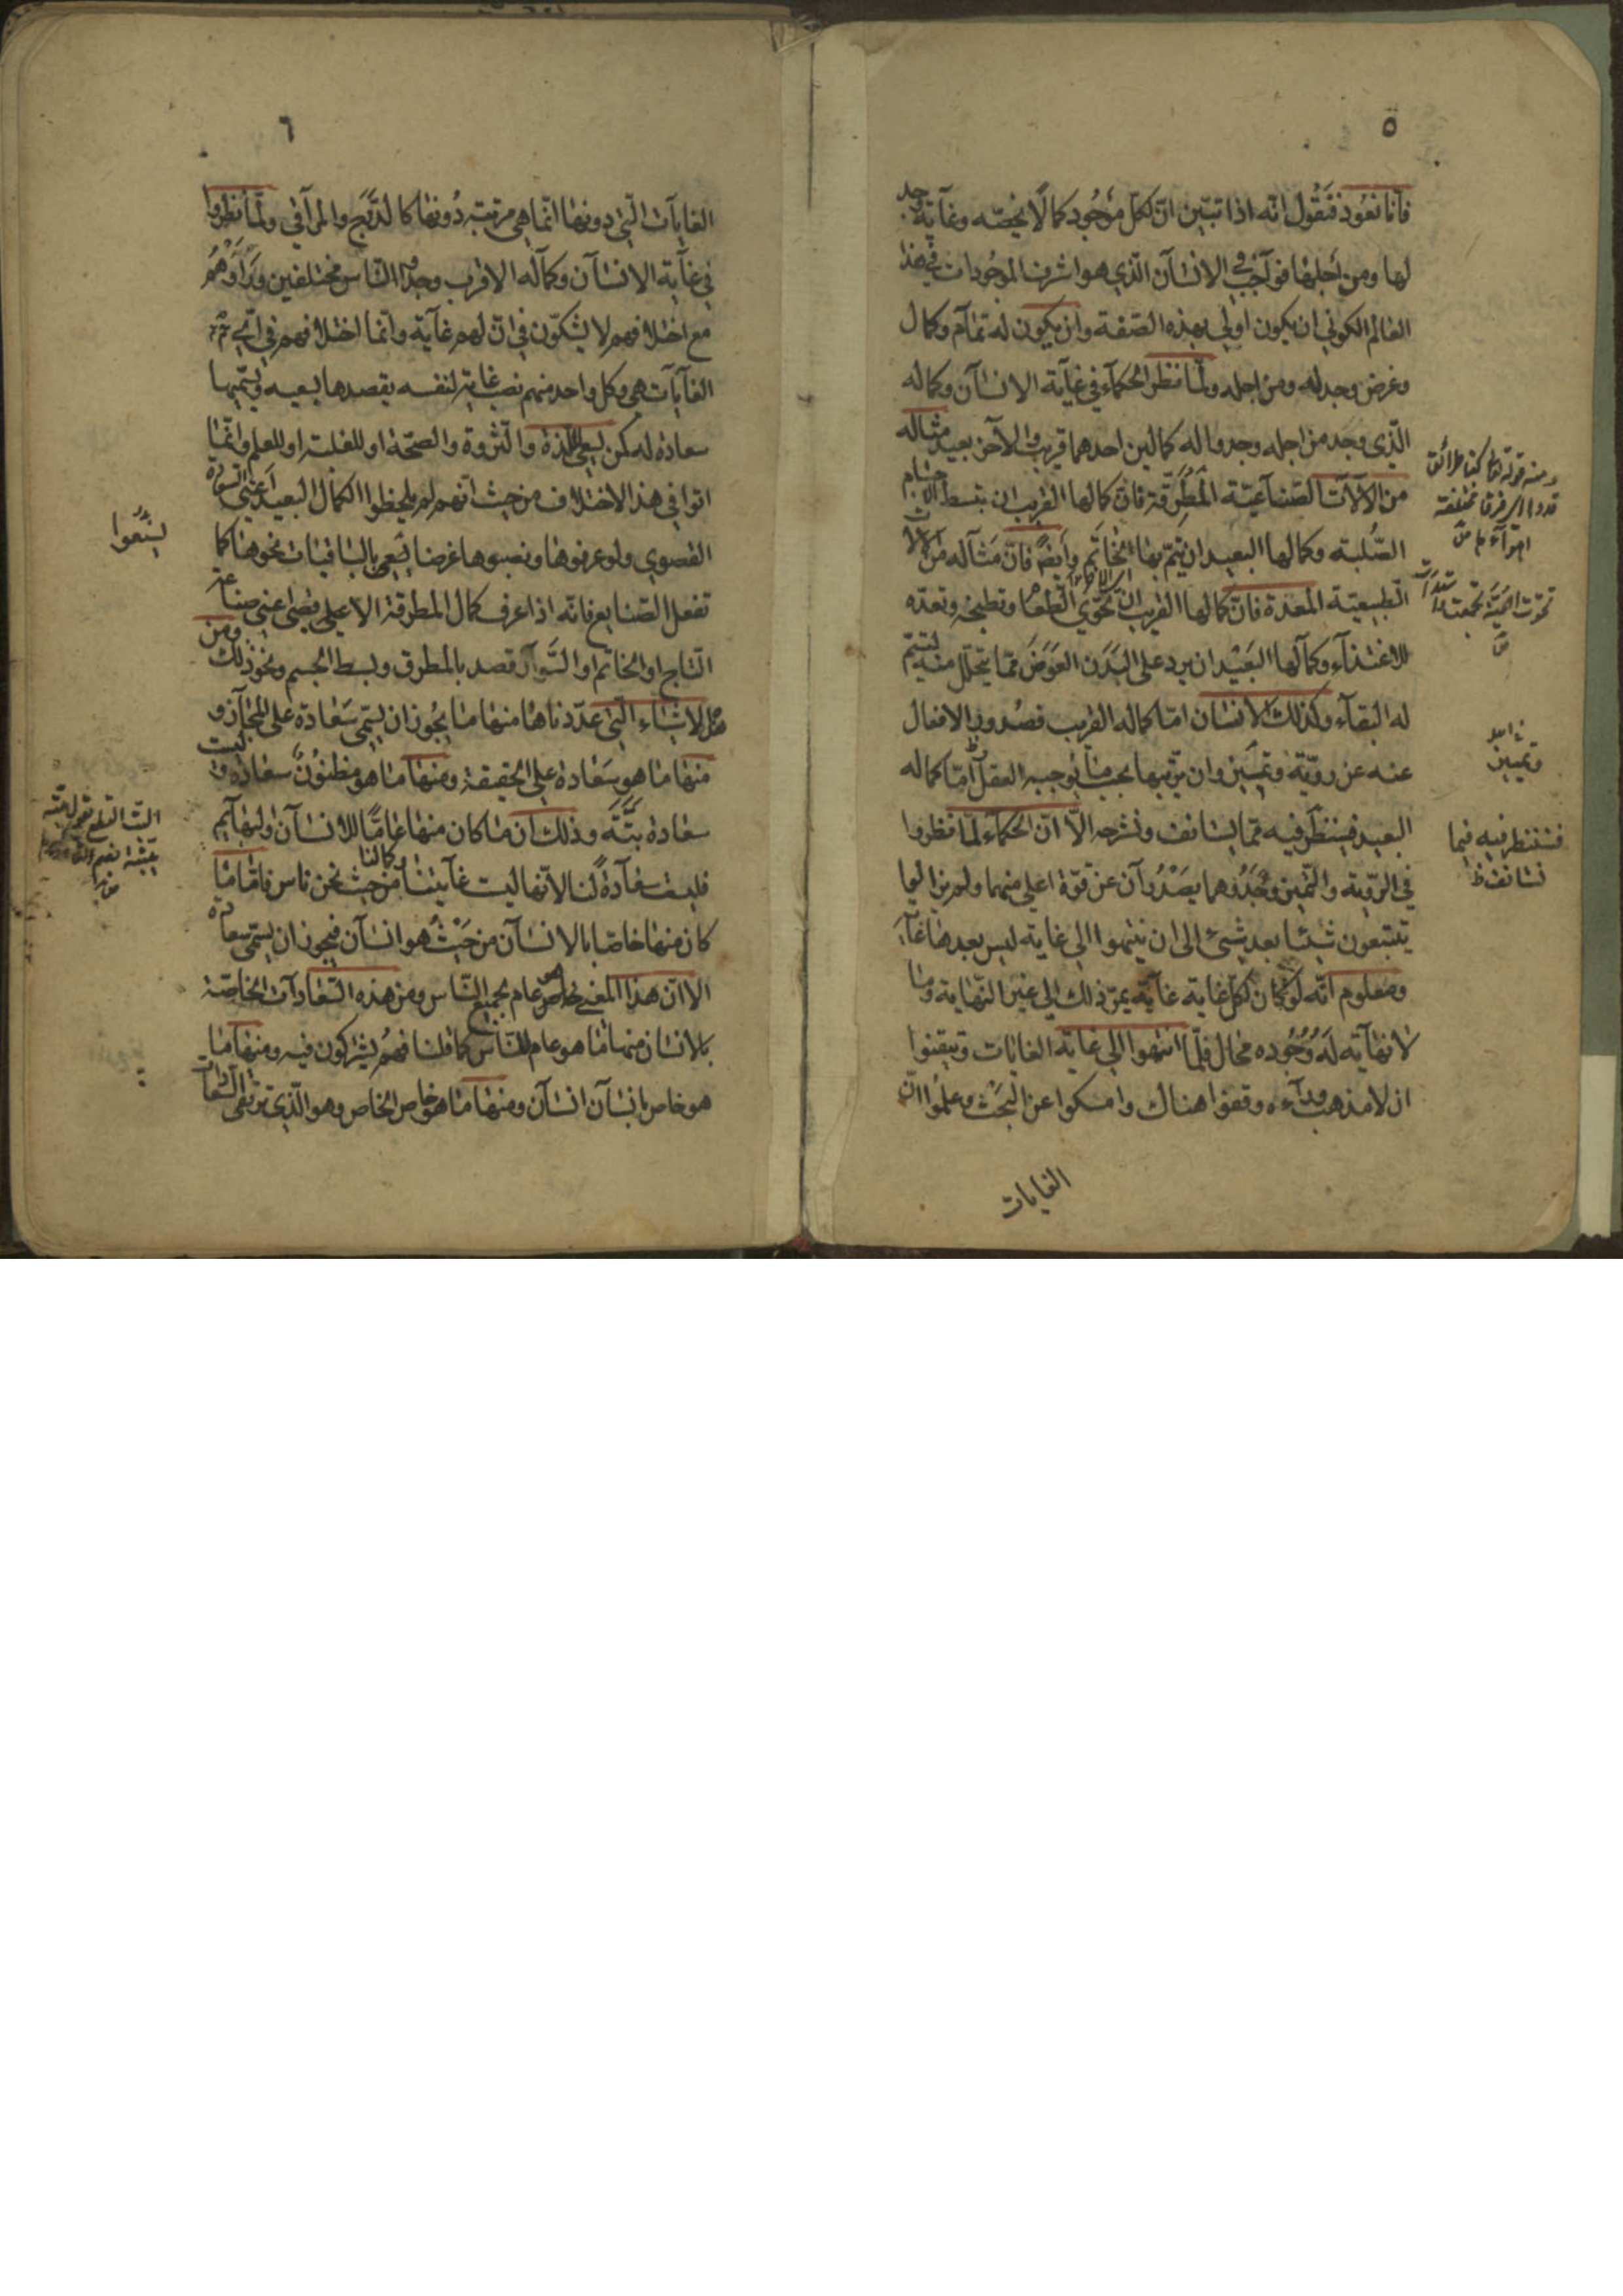 ٥
فانا نعود فنقول انه اذا تبيّن ان لكل موجود كمالا يخصّه وغاية وجد
لها ومن اجلها فواجب في الانسان الذي هو اشرف الموجودات في هذا
العالم الكوني ان يكون اولي بهذه الصفة وان يكون له تمام وكمال
وغرض وجد له ومن اجله ولمّا نظر الحكماء في غاية الانسان وكماله
الّذي وجد من اجله وجدوا له كمالين احدهما قريب والآخر بعيد مثاله
من الآلات الصّناعيّة المطرقة فانّ كمالها القريب ان تبسط الاجسام
الصّلبة وكمالها البعيد ان يتمّ بها الخاتم وأيضا فانّ مثاله من الآلات
الطبيعيّة المعدة فانّ كمالها القريب ان تحوي الطعام وتطبخه وتعدّه
للاغتذاء وكمالها البعيد ان يرد على البدن العوض ممّا يتحلّل منه ليتمّ
له البقاء وكذلك الانسان امّا كماله القريب فصدور الافعال
عنه عن رويّة وتمييز وان يرتّبها بحسب ما يوجبه العقل امّا كماله
البعيد فينظر فيه ممّا يستانف ونشرحه الّا انّ الحكماء لمّا نظروا
في الرّوية والتّميز وجدوهما يصدران عن قوّة اعلى منهما ولم يزالوا
يتتبعون شيئا بعد شيئ الى ان ينتهوا الى غاية ليس بعدها غاية
ومعلوم انّه لو كان لكلّ غاية غاية يمرّ ذلك الى غير النّهاية وما
لا نهاية له وجوده محال فلمّا انتهوا الى غاية الغايات وتيقنوا
ان لا مذهب وراءه وقفوا هناك وامسكوا عن البحث وعلموا انّ
الغايات
قددا اي فرقا مختلفة
وتمييز
فسننظر فيه فيما
نستانف ظ
٦
الغايات الّتي دونها انّما هي مرتبة دونها كالدّرج والمراقي ولمّا نظروا
في غاية الانسان وكماله الاقرب وجدوا النّاس مختلفين ورأوهم
مع اختلافهم لا يشكّون في انّ لهم غاية وانّما اختلافهم في ايّ
الغايات هي وكل واحد منهم نصب غاية لنفسه يقصدها بسعيه ويسمّيها
سعادة له كمن يسعى للّذة والثروة والصحّة او للغلبة او للعلم وانّما
اتوا في هذا الاختلاف من حيث انهم لم يلحظوا الكمال البعيد اعني السعادة
القصوي ولو عرفوها ونصبوها غرضا لسعي بالباقيات نحوها كما
تفعل الصنايع فانه اذا عرف كمال المطرقة الاعلى الاقصى اعني صناعة
التاج او الخاتم او السّوار قصد بالمطرق وبسط الجسم ونحو ذلك ومن
هذه الاشياء الّتي عدّدناها منها ما يجوز ان يسمّى سعادة على المجاز و
منها ما هو سعادة على الحقيقة ومنها ما هو مظنون سعادة وليست
سعادة بتّة وذلك ان ما كان منها عامّا للانسان ولبهايم
فليست سعادة لنا لانّها ليست غايتنا وكمالنا من حيث نحن ناس فامّا ما
كان منها خاصّا بالانسان من حيث هو انسان فيجوز ان يسمّى سعادة
الا انّ هذا المعنى الخاص هو عام لجميع النّاس ومن هذه السّعادات الخاصّة
بالانسان منها ما هو عام للنّاس كما قلنا فهم يشتركون فيه ومنها ما
هو خاص بانسان انسان ومنها ما هو خاص الخاص وهو الّذي ترتقى السعادات